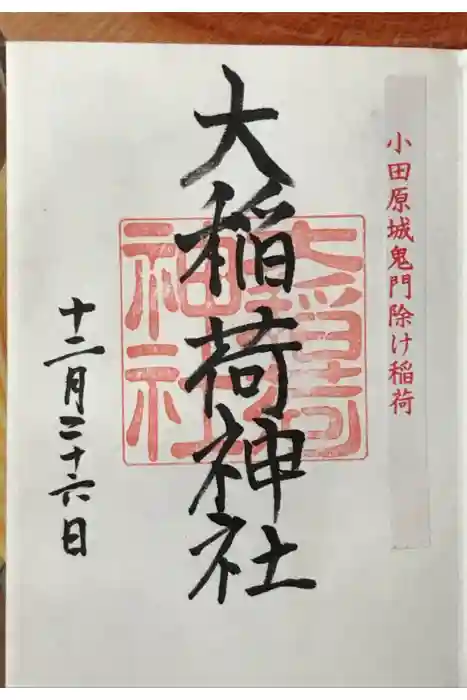 小田原城鬼門除け稲荷
大稲荷神社
大稲荷
神社
十二月二十六日